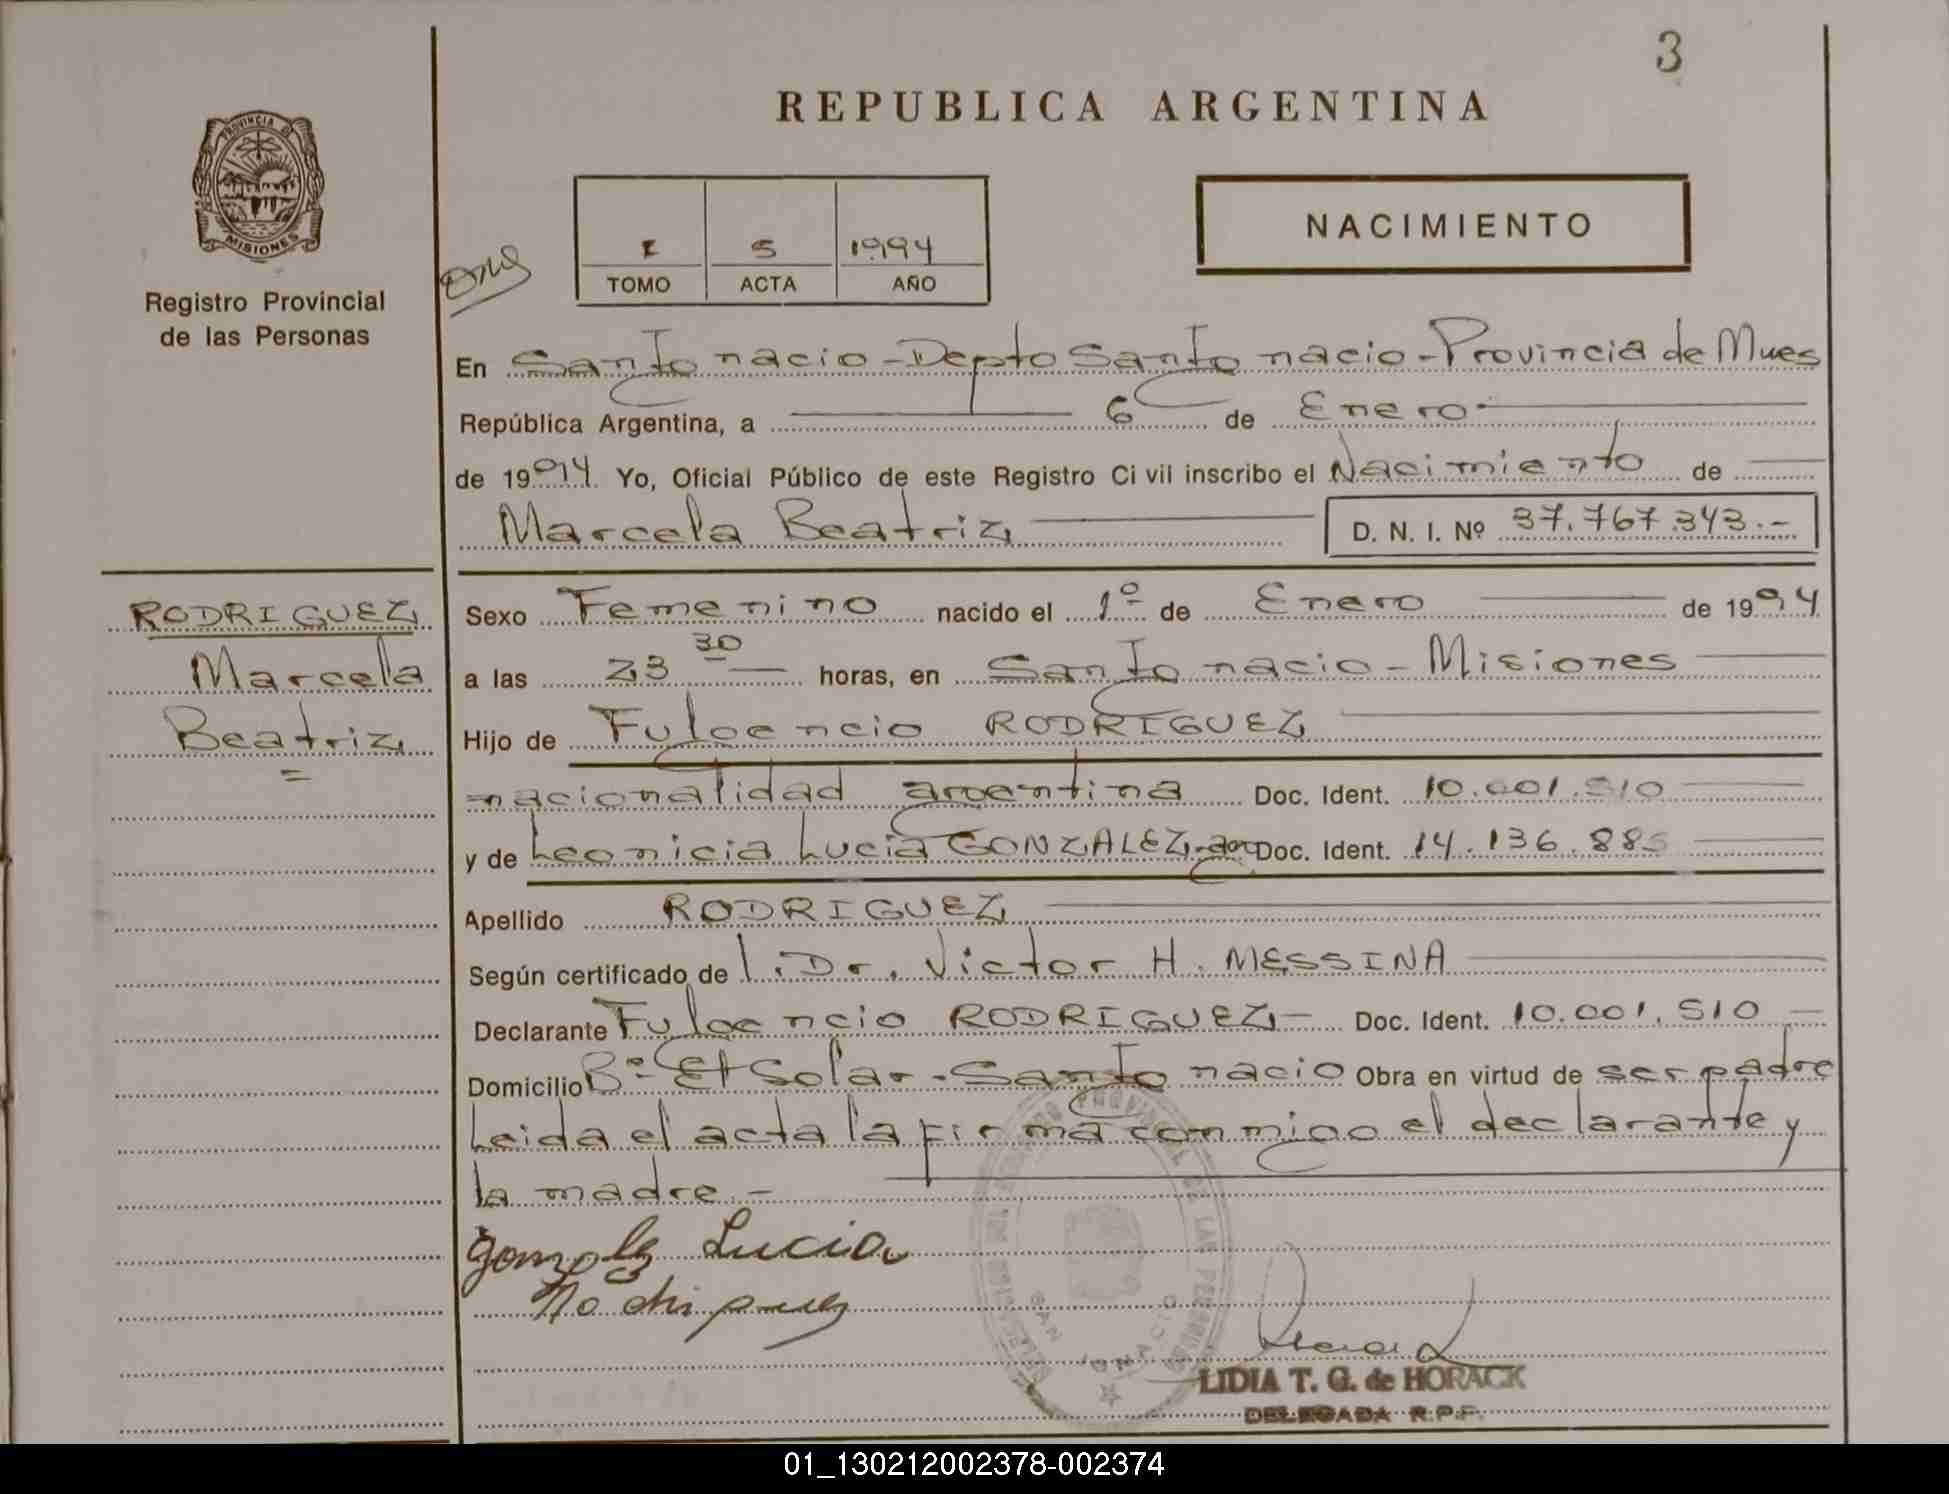 3
REPUBLICA ARGENTINA
PROVINCIA DE
MISIONES
Registro Provincial
de las Personas
I 5 1994
TOMO ACTA AÑO
NACIMIENTO
En San Ignacio - Depto San Ignacio - Provincia de Mnes
República Argentina, a 6 de Enero
de 1994 Yo, Oficial Público de este Registro Civil inscribo el Nacimiento de
Marcela Beatriz D. N. I. Nº 37.767.343.-
RODRIGUEZ
Marcela
Beatriz
=
Sexo Femenino nacido el 1º de Enero de 1994
a las 23 30 horas, en San Ignacio - Misiones
Hijo de Fulgencio RODRIGUEZ
nacionalidad argentina Doc. Ident. 10.001.510
y de Leonicia Lucia GONZALEZ - arg Doc. Ident. 14.136.885
Apellido RODRIGUEZ
Según certificado de l. Dr. Victor H. MESSINA
Declarante Fulgencio RODRIGUEZ - Doc. Ident. 10.001.510
Domicilio Bº El Solar - San Ignacio Obra en virtud de ser padre
Leida el acta la firma conmigo el declarante y
la madre -
Gonzalez Lucia
SAN IGNACIO
LIDIA T. G. de HORACK
DELEGADA R.P.P.
01_130212002378-002374